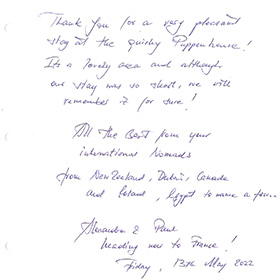 Thank you for a very pleasant
stay at the quirky Puppenhause!
Its a lovely area and although
our stay was so short, we will
remember it for sure!
All the Best from your
international Nomads
from New Zealand, Dubai, Canada
and Poland, Egypt to name a few..
Alexander & Paul
heading now to France!
Friday, 13th May 2022